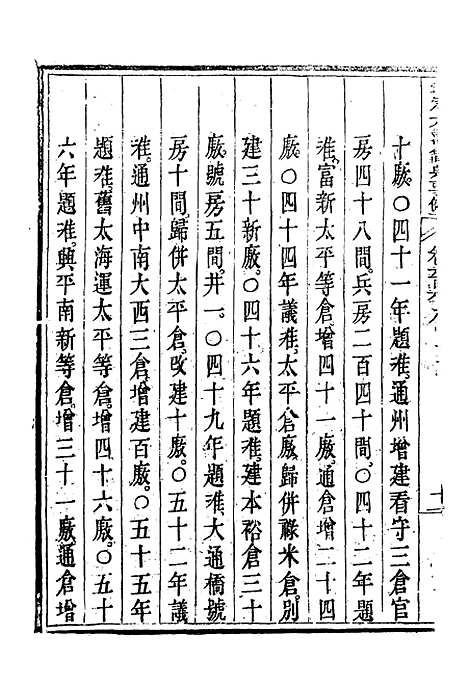 十廒。○四十一年題准。通州增建看守三倉官
房四十八間。兵房二百四十間。○四十二年題
准。富新太平等倉。增四十一廒。通倉增二十四
廒。○四十四年議准。太平倉廒。歸併祿米倉。別
建三十新廒。○四十六年題准。建本裕倉三十
廒。號房五間。井一。○四十九年題准。大通橋號
房十間。歸併太平倉。改建十廒。○五十二年議
准。通州中南大西三倉。增建百廒。○五十五年
題准。舊太海運太平等倉。增四十六廒。○五十
六年題准。興平南新等倉。增三十一廒。通倉增